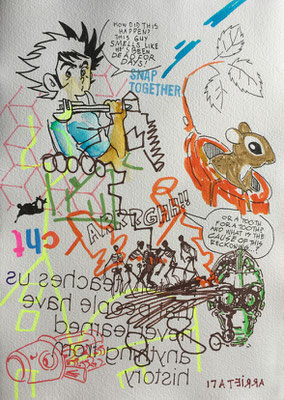 HOW DID THIS
HAPPEN?
THIS GUY
SMELLS LIKE
HE'S BEEN
DEAD FOR
DAYS!
SNAP
TOGETHER
ARRRGHH!!
OR A TOOTH
FOR A TOOTH?
AND WHAT IS THE
CAUSE OF THIS
teaches us
people have
never learned
anything from
history
ARRIETA 17